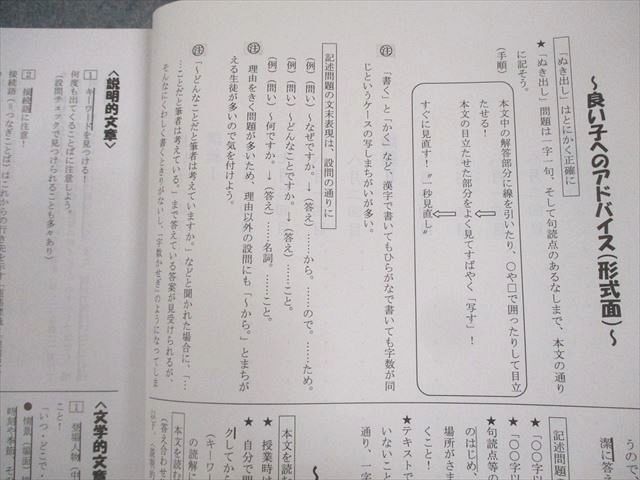 ～良い子へのアドバイス(形式面)～
「ぬき出し」はとにかく正確に
★「ぬき出し」問題は一字一句、そして句読点のあるなしまで、本文の通り
に記そう。
(手順)
本文中の解答部分に線を引いたり、○や□で囲ったりして目立
たせる！
本文の目立たせた部分をよく見てすばやく「写す」！
すぐに見直す！"一秒見直し"
注 「書く」と「かく」など、漢字で書いてもひらがなで書いても字数が同
じというケースの写しまちがいが多い。
記述問題の文末表現は、設問の通りに
(例)(問い) ～なぜですか。→(答え)……から。……ので。……ため。
(例)(問い) ～どんなことですか。→(答え)……こと。
(例)(問い) ～何ですか。→(答え)……名詞。……こと。
注 理由をきく問題が多いため、理由以外の設問にも「～から。」とまちが
える生徒が多いので気を付けよう。
注 「～どんなことだと筆者は考えていますか。」などと聞かれた場合に、「…
…ことだと筆者は考えている。」まで答えている答案が見受けられるが、
そんなにくわしく書くときりがないし、「字数かせぎ」のようになってしま
うので、
潔に答え
記述問題の
★「○○字以
「○○字以
句読点等の
のはじめ、
場所がさま
くこと！
★テキストで
いないこと
通り、一字
本文を読む
★授業時は
★自分で問
クしてから
(キーワー
の読解に
本文を読む
(答え合わせ
以下、〈説明的
〈説明的文章〉
1 キーワードを見つける！
何度も出てくることばに注意しよう。
(設問チェックで見つけられることも多々あり)
2 接続語に注意！
接続語(=つなぎことば)はこれからの行き先を示す
〈文学的文章〉
1 登場人物(中
こと！
「いつ・どこで・
●情景(場面)描
時刻や季節、そ